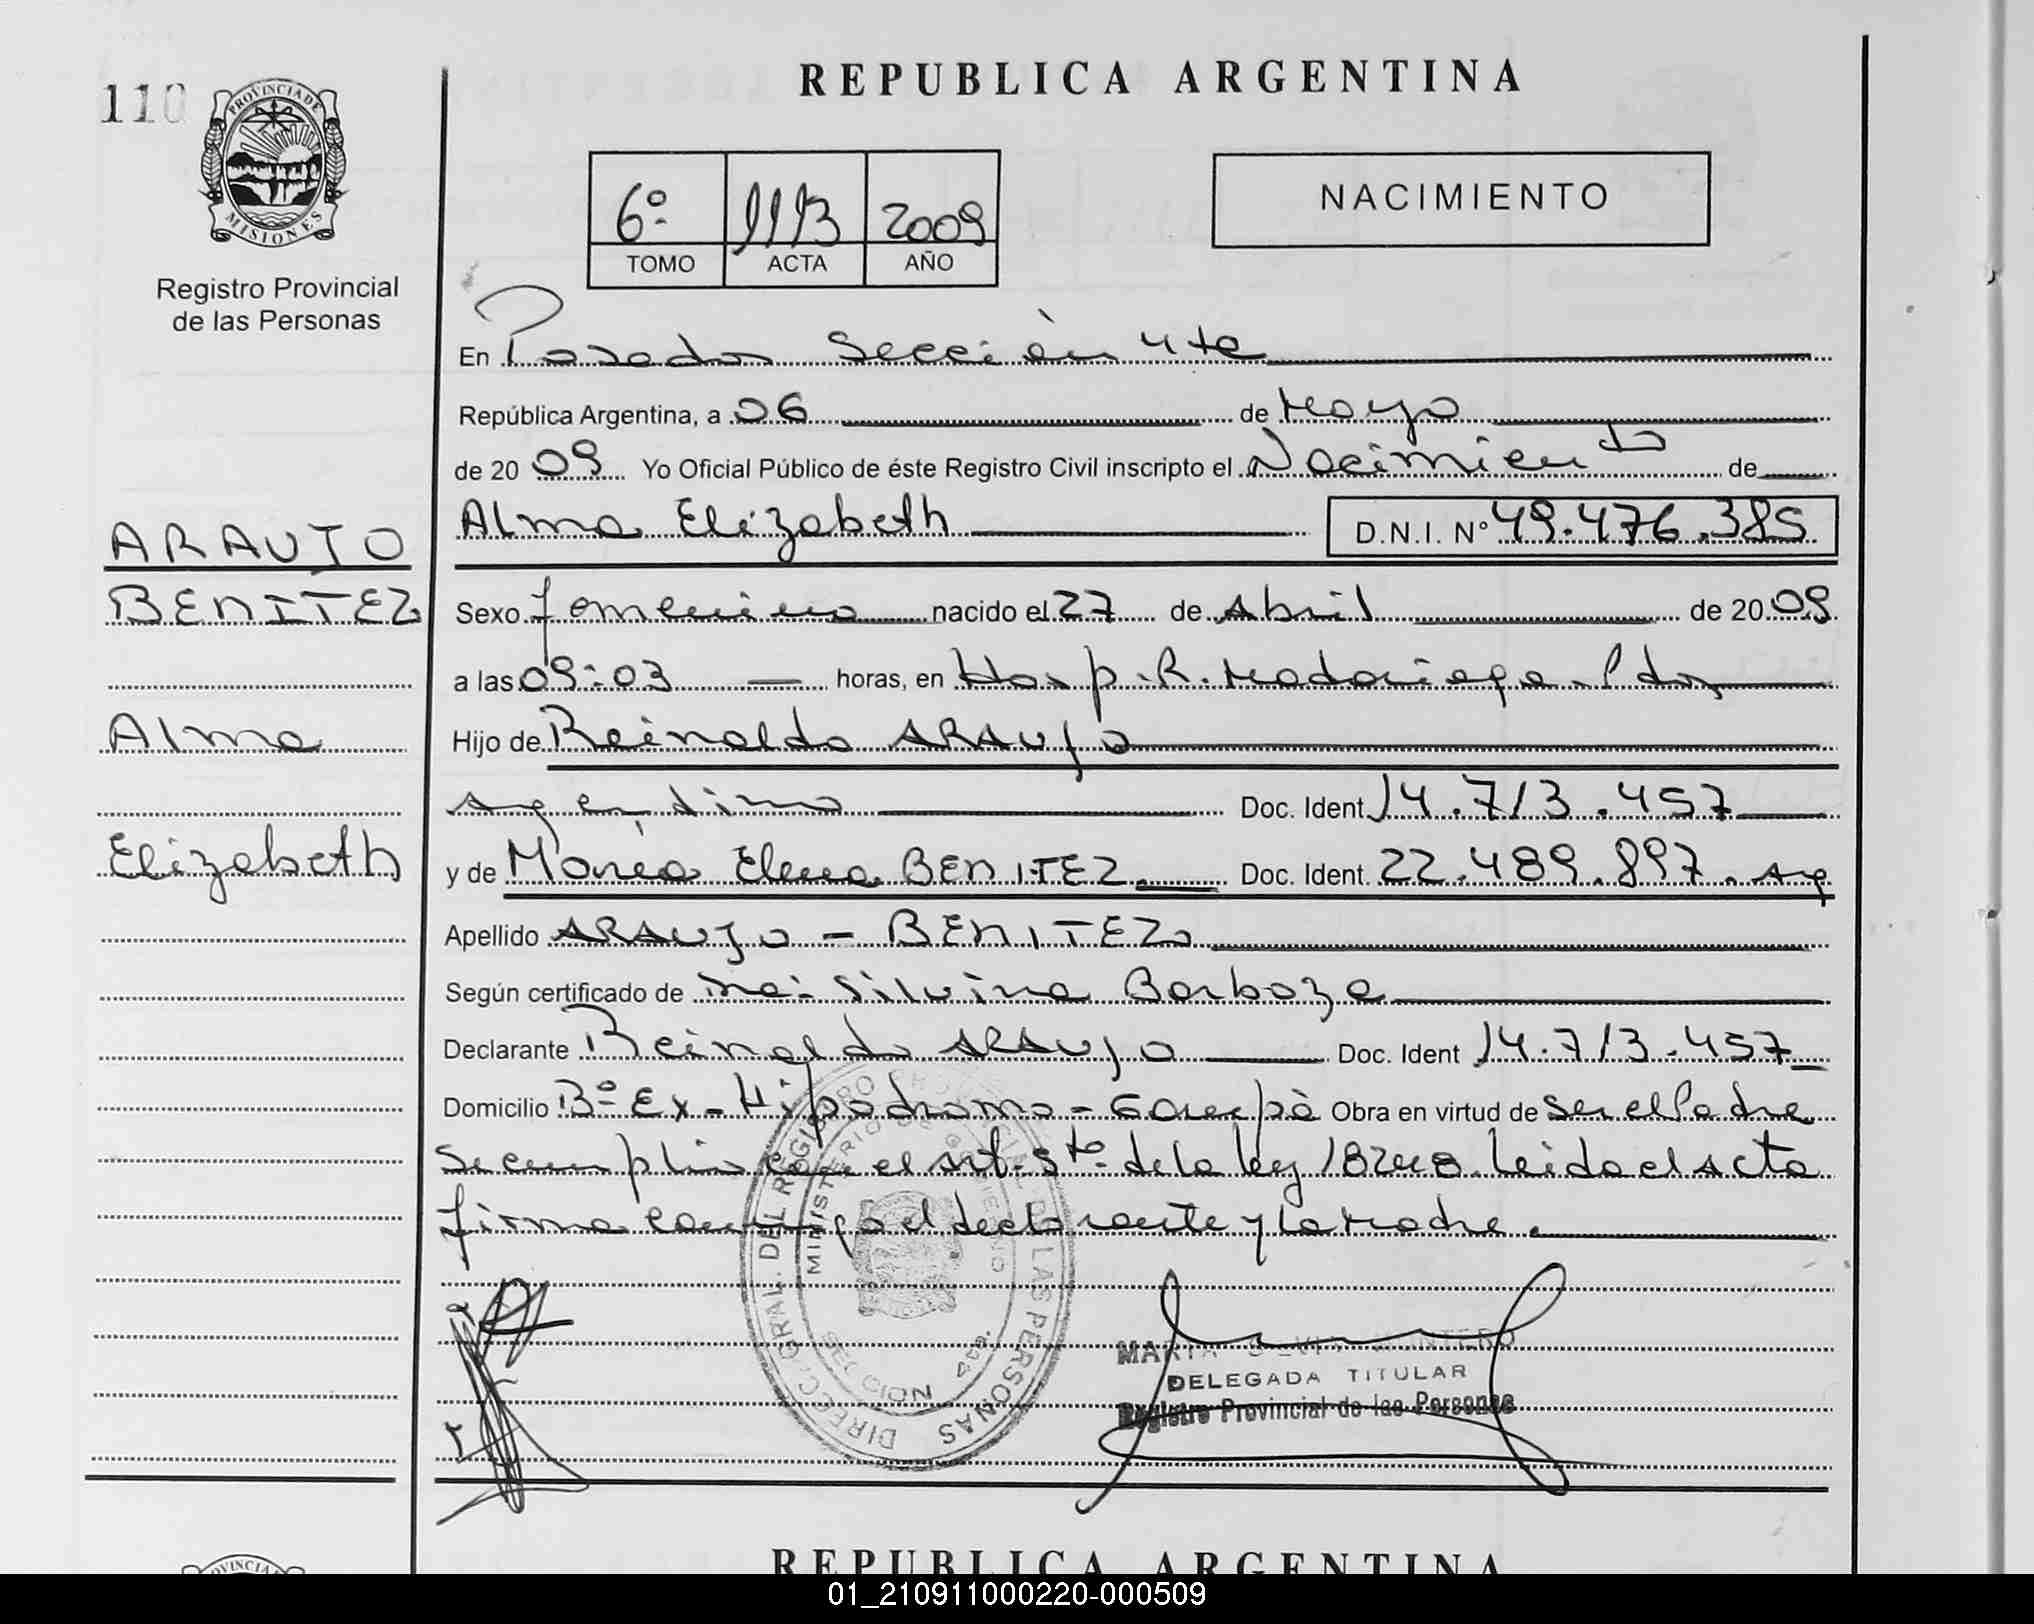 REPUBLICA ARGENTINA
110
PROVINCIA DE
MISIONES
Registro Provincial
de las Personas
6º 1113 2009
TOMO ACTA AÑO
NACIMIENTO
En Posadas Sección 4ta
República Argentina, a 06 de Mayo
de 20 09 Yo Oficial Público de éste Registro Civil inscripto el Nacimiento de
Alma Elizabeth D.N.I. Nº 49.476.385
ARAUJO
BENITEZ
Alma
Elizabeth
Sexo femenino nacido el 27 de Abril de 20 09
a las 09:03 horas, en Hosp. R. Madariaga - Pdas
Hijo de Reinaldo ARAUJO
Argentino Doc. Ident 14.713.457
y de María Elena BENITEZ Doc. Ident. 22.489.897. Arg
Apellido ARAUJO - BENITEZ
Según certificado de Silvina Barboza
Declarante Reinaldo ARAUJO Doc. Ident 14.713.457
Domicilio Bº Ex-Hipódromo - Garupà Obra en virtud de ser el Padre
Se cumplió con el art. 5to de la ley 18248. Leida el acta
firma conmigo el declarante y la madre.
DIRECC. GRAL. DEL REGISTRO PROVINCIAL DE LAS PERSONAS
MINISTERIO DE GOBIERNO
SECCION 4ta.
DELEGADA TITULAR
Registro Provincial de las Personas
REPUBLICA ARGENTINA
01_210911000220-000509